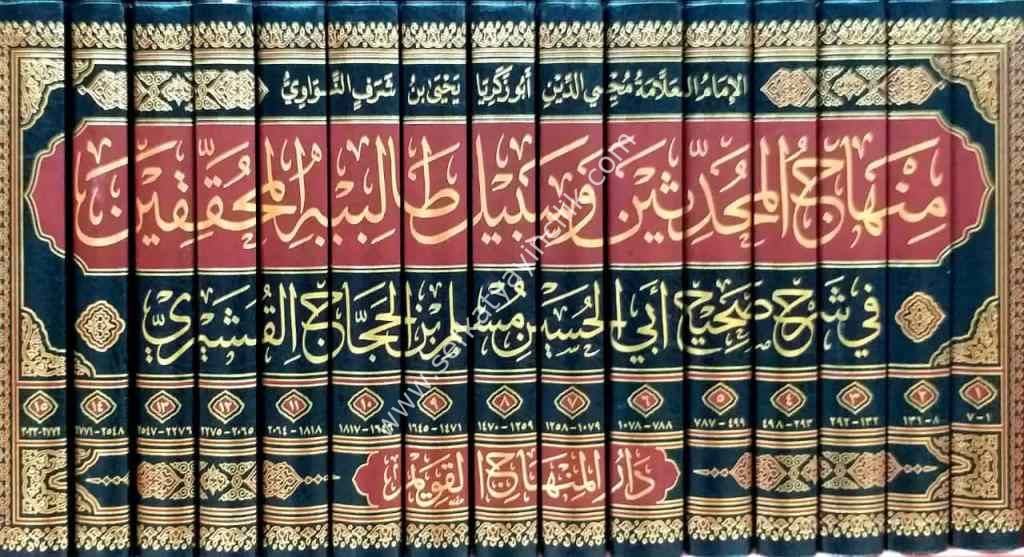 الإمام العلامة محيي الدين أبو زكريا يحيى بن شرف النواوي
منهاج المحدثين وسبيل طالبيه المحققين
في شرح صحيح أبي الحسين مسلم بن الحجاج القشيري
١ ٢ ٣ ٤ ٥ ٦ ٧ ٨ ٩ ١٠ ١١ ١٢ ١٣ ١٤ ١٥
١-٧ ٨-١٣١ ١٣٢-٢٩٢ ٢٩٣-٤٩٨ ٤٩٩-٧٨٧ ٧٨٨-١٠٧٨ ١٠٧٩-١٢٥٨ ١٢٥٩-١٤٧٠ ١٤٧١-١٦٤٥ ١٨١٨-٢٠٦٤ ٢٠٦٥-٢٢٧٥ ٢٢٧٦-٢٥٤٧ ٢٥٤٨-٢٧٧١
دار المنهاج القويم
www.seckafyayincilik.com